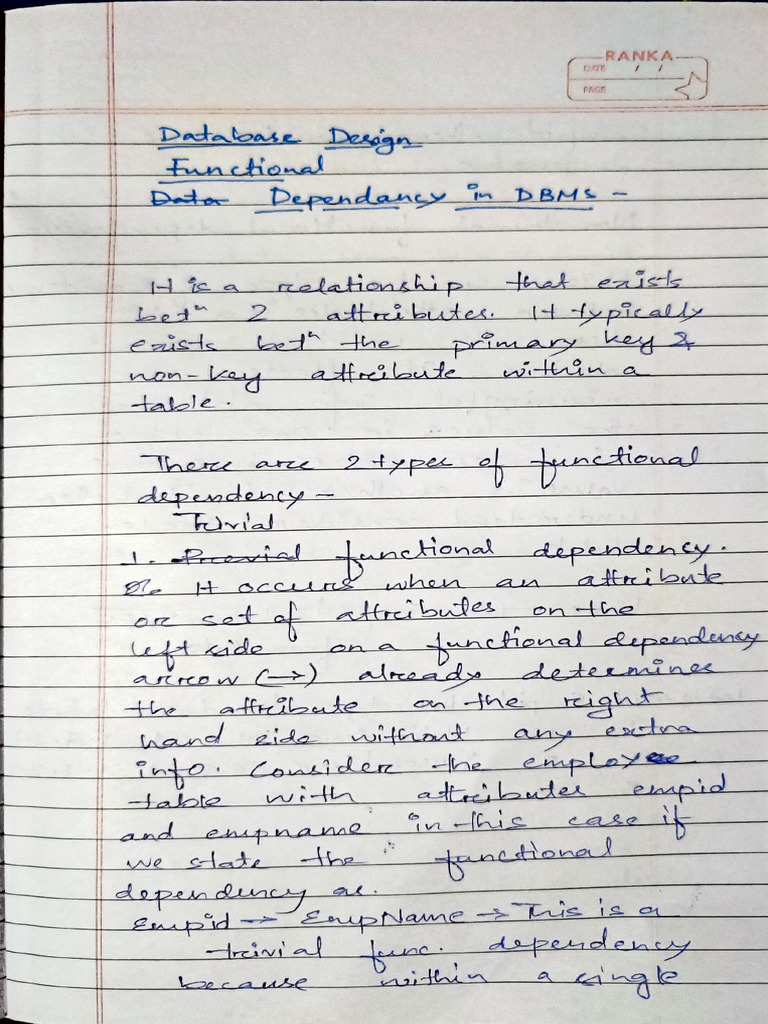 RANKA
DATE / /
PAGE
Database Design
Functional
Data Dependancy in DBMS -
It is a relationship that exists
betn 2 attributes. It typically
exists betn the primary key &
non-key attribute within a
table.
There are 2 types of functional
dependency -
Trivial
1. Previal functional dependency.
It occurs when an attribute
or set of attributes on the
left side on a functional dependency
arrow (→) already determines
the attribute on the right
hand side without any extra
info. Consider the employee
table with attributes empid
and empname in this case if
we state the functional
dependency as.
Empid → EmpName → This is a
trivial func. dependency
because within a single